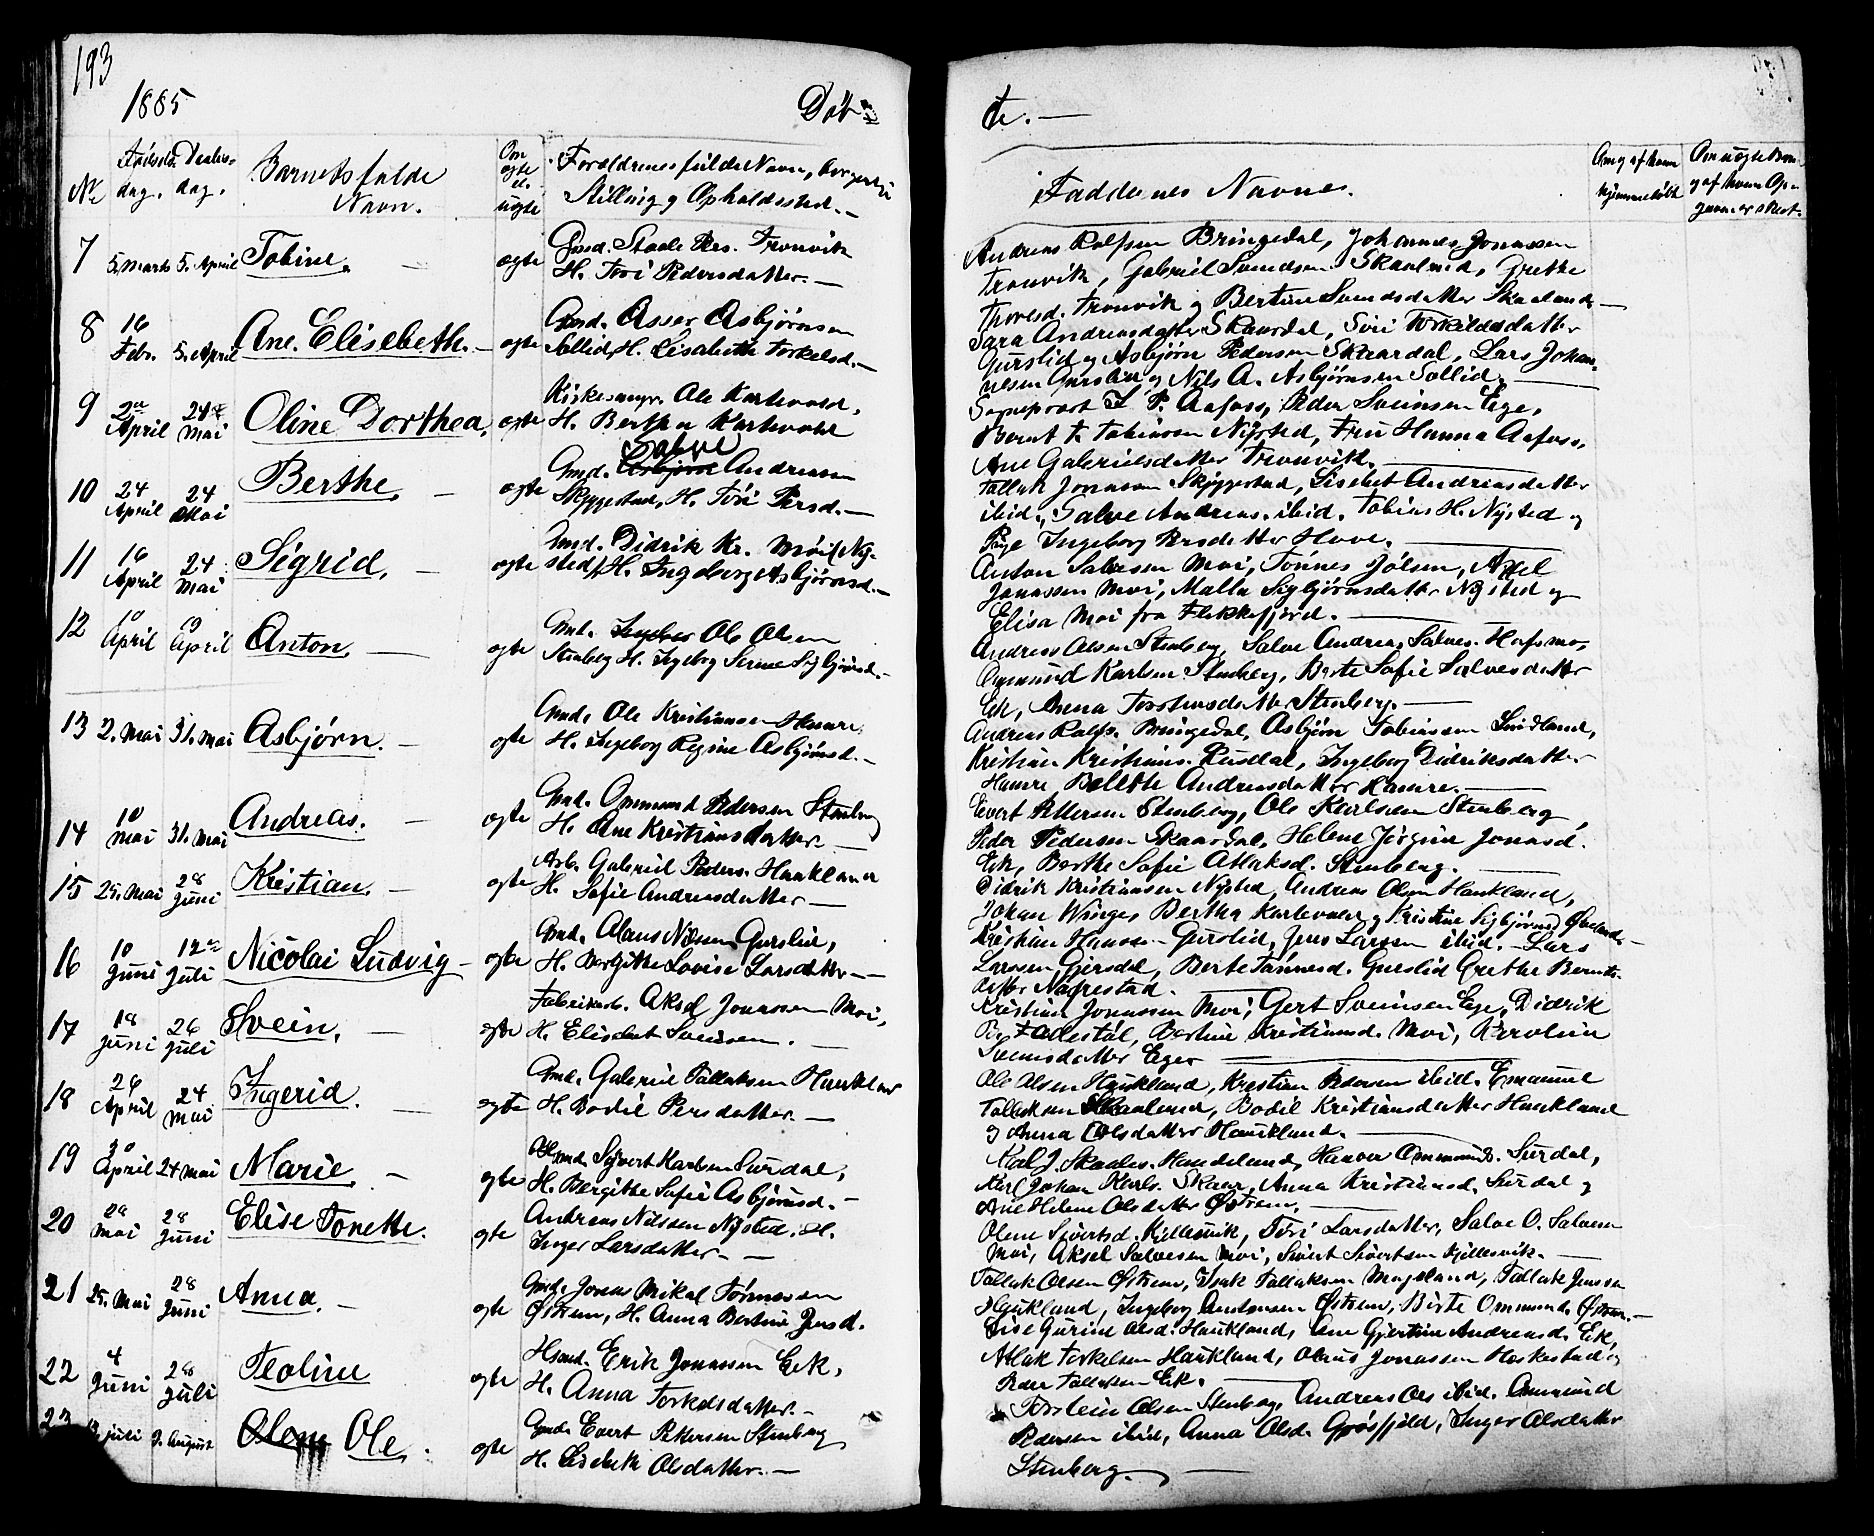 193
1885
Døb-
te.
No
Fødsels-
dag.
Døbes-
dag.
Barnets fulde
Navn.
Om
ægte
el.
uægte
Forældrenes fulde Navn, borgerlig
Stilling og Opholdssted.
Faddernes Navne.
Om og af hvem
hjemmedøbt
7 5. Marts 5. April Tobine. ægte Gmd. Staale Pers. Tronvik
H. Tori Pedersdatter.
Andreas Rolfsen Bringedal, Johannes Jonassen
Tronvik, Gabriel Svendsen Skaaland, Grethe
Thoresd. Tronvik og Bertine Svendsdatter Skaaland
8 16 Febr. 5. April Ane Elisebeth. ægte Gmd. Asser Asbjørnsen
Sollid, H. Lisabeth Torkelsd.
Sara Andreasdatter Skaardal, Siri Torkildsdatter
Gurslid og Asbjørn Pedersen Skaardal, Lars Johan-
nesen Gurslid og Nils A. Asbjørnsen Sollid.
9 2den April 24de Mai Oline Dorthea. ægte Kirkesanger Ole Kartevold,
H. Bertha Kartevold
Sogneprest P. Aafoss, Peder Sveinsen Ege,
Bernt K. Tobiassen Nysted, Fru Hanna Aafoss,
Ane Gabrielsdatter Tronvik.
10 24 April 24 Mai Berthe. ægte Gmd. Asbjørn Salve Andreassen
Skjeggestad, H. Tori Persd.
Tallak Jonassen Skjeggestad, Lisebet Andreasdatter
ibid., Salve Andreas. ibid. Tobias H. Nysted og
Pige Ingeborg Persdatter Hove.
11 16 April 24 Mai Sigrid. ægte Gmd. Didrik Kr. Moi (Ny-
sted) H. Ingeborg Asbjørnsd.
Anton Salvesen Moi, Tønnes Jølsen, Axel
Jonassen Moi, Malla Sigbjørnsdatter Nysted og
Elisa Moi fra Flekkefjord.
12 10 April 19 April Anton. ægte Gmd. Ole Olsen
Stenberg H. Ingeborg Serine Sigbjørnsd.
Andreas Olsen Stenberg, Salve Andreas Salves. Hafsmo,
Ommund Karlsen Stenberg, Berte Sofie Salvesdatter
Eik, Anna Torsteinsdatter Stenberg.
13 2. Mai 31. Mai Asbjørn. ægte Gmd. Ole Kristiansen Hamre,
H. Ingeborg Regine Asbjørnsd.
Andreas Rolfs. Bringedal, Asbjørn Tobiassen Sindland,
Kristian Kristians. Rusdal, Ingeborg Didriksdatter
Hamre, Bolette Andreasdatter Hamre.
14 10 Mai 31. Mai Andreas. ægte Gmd. Ommund Pedersen Stenberg
H. Ane Kristiansdatter.
Evert Pettersen Stenberg, Ole Karlsen Stenberg,
Peder Pedersen Skaardal, Helene Jørgine Jonasd.
Eik, Berthe Sofie Atlaksd. Stenberg.
15 25. Mai 28 Juni Kristian. ægte Arb. Gabriel Peders. Haukland
H. Sofie Andreasdatter
Didrik Kristiansen Nysted, Andreas Olsen Haukland,
Johan Winge, Bertha Kartevold og Kristine Sigbjørnsd.
16 10 Juni 12te Juli Nicolai Ludvig ægte Gmd. Olaus Nilsen Gurslid,
H. Bergitte Lovise Larsdatter
Kristian Hansen Gurslid, Jens Larsen ibid. Lars
Larssen Gjersdal, Berte Tønnesd. Gurslid Grethe Bernts-
datter Nagrestad.
17 18 Juni 26 Juli Svein. ægte Fabrikarb. Aksel Jonassen Moi,
H. Elisebet Sveinsen.
Kristian Jonassen Moi, Gert Sveinsen Ege, Didrik
Fedestøl, Bertine Kristiansd. Moi, Karoline
Sveinsdatter Ege
18 26 April 24 Mai Ingerid. ægte Gmd. Gabriel Tallaksen Haukland
H. Bodil Persdatter.
Ole Olsen Haukland, Kristian Pedersen ibid. Emanuel
Tallaksen Skaaland, Bodil Kristiansdatter Haukland
og Anna Olsdatter Haukland.
19 30 April 24 Mai Marie. ægte Gmd. Sivert Karlsen Surdal,
H. Bergitte Sofie Asbjørnsd.
Karl J. Skaales. Handeland, Hanver Ommunds. Surdal,
Karl Johan Karls. Skaar, Anna Kristiansd. Surdal og
Ane Helene Olsdatter Østrem.
20 28 Mai 28 Juni Elise Tonette. ægte Andreas Nilssen Nysted. H.
Inger Larsdatter.
Olene Sivertsd. Kjellesvik, Tori Larsdatter, Salve O. Salvesen
Moi, Aksel Salvesen Moi, Sivert Sivertsen Kjellesvik.
21 25. Mai 28 Juni Anna. ægte Gmd. Jonas Mikal Tønnessen
Østrem, H. Anna Bertine Jensd.
Tallak Olsen Østrem, Isak Tallaksen Mageland, Tallak Jenssen
Haukland, Ingeborg Østrem, Birte Ommunds. Østrem.
22 4 Juni 28 Juli Teoline ægte Hsmd. Erik Jonassen Eik,
H. Anna Torkelsdatter.
Lise Gurine Olsd. Haukland, Ane Gjertine Andreasd. Eik,
Atlak Torkelsen Haukland, Olaus Jonassen Heskestad og
Peder Tollefsen Eik.
23 juli 9. August Olene Ole. ægte Gmd. Evert Pettersen Stenberg
H. Lisebeth Olsdatter.
Torstein Olsen Stenberg, Andreas Ols ibid. Ommund
Pedersen ibid, Anna Olsd. Grøsfjeld, Inger Olsdatter
Stenberg.